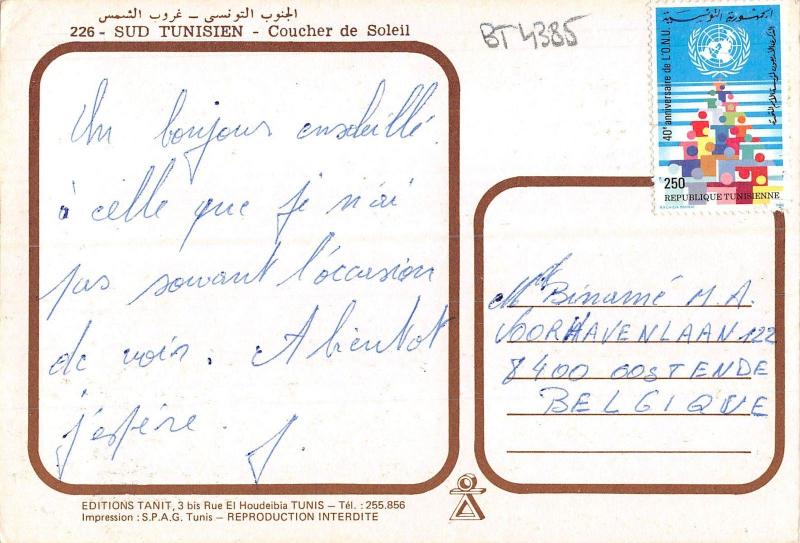 الجنوب التونسي ـ غروب الشمس
226 - SUD TUNISIEN - Coucher de Soleil
BT 4385
Un bonjour ensoleillé
à celle que je n'ai
pas souvent l'occasion
de voir. A bientot
j'espére. J.
الجمهورية التونسية
40e anniversaire de L'O.N.U.
250
REPUBLIQUE TUNISIENNE
Binamé M.A.
VOORHAVENLAAN 122
8400 OOSTENDE
BELGIQUE
EDITIONS TANIT, 3 bis Rue El Houdeibia TUNIS - Tél. : 255.856
Impression : S.P.A.G. Tunis - REPRODUCTION INTERDITE